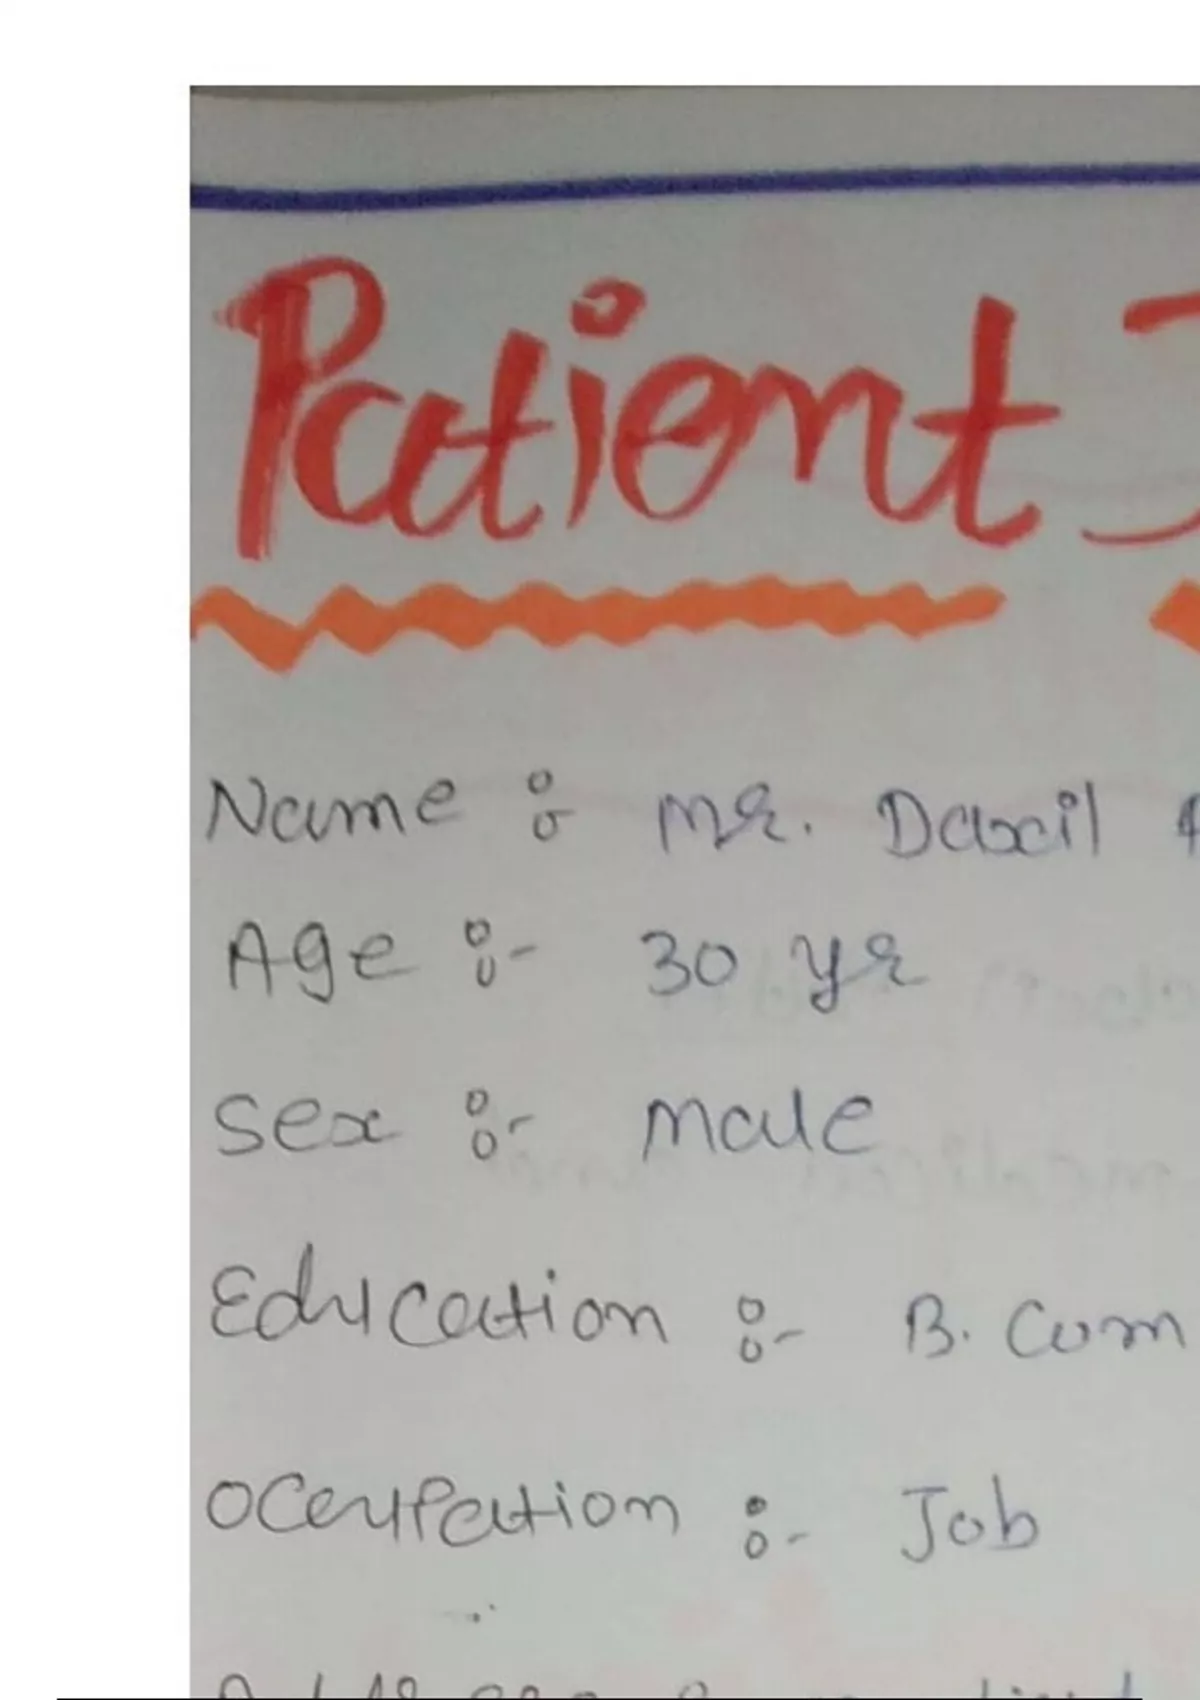 Patient
Name :- Mr. Daxil
Age :- 30 yr
Sex :- Male
Education :- B. Com
Occupation :- Job